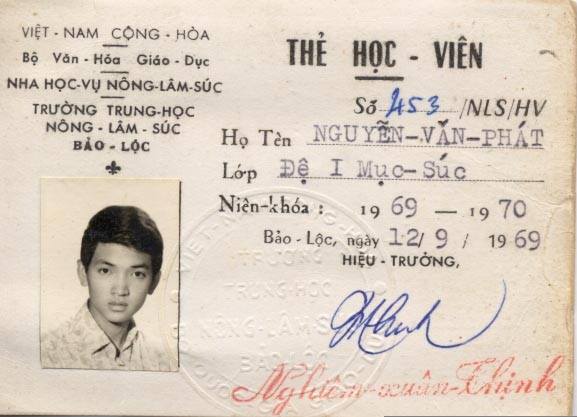 VIỆT-NAM CỘNG-HÒA
Bộ Văn-Hóa Giáo-Dục
NHA HỌC-VỤ NÔNG-LÂM-SÚC
TRƯỜNG TRUNG-HỌC
NÔNG-LÂM-SÚC
BẢO-LỘC
THẺ HỌC-VIÊN
Số 453/NLS/HV
Họ Tên NGUYỄN-VĂN-PHÁT
Lớp Đệ I Mục-Súc
Niên-khóa : 1969 — 1970
Bảo-Lộc, ngày 12/9/1969
HIỆU-TRƯỞNG,
Nghiêm-xuân-Thịnh
VIỆT-NAM
TRƯỜNG
TRUNG-HỌC
NÔNG-LÂM-SÚC
BẢO-LỘC